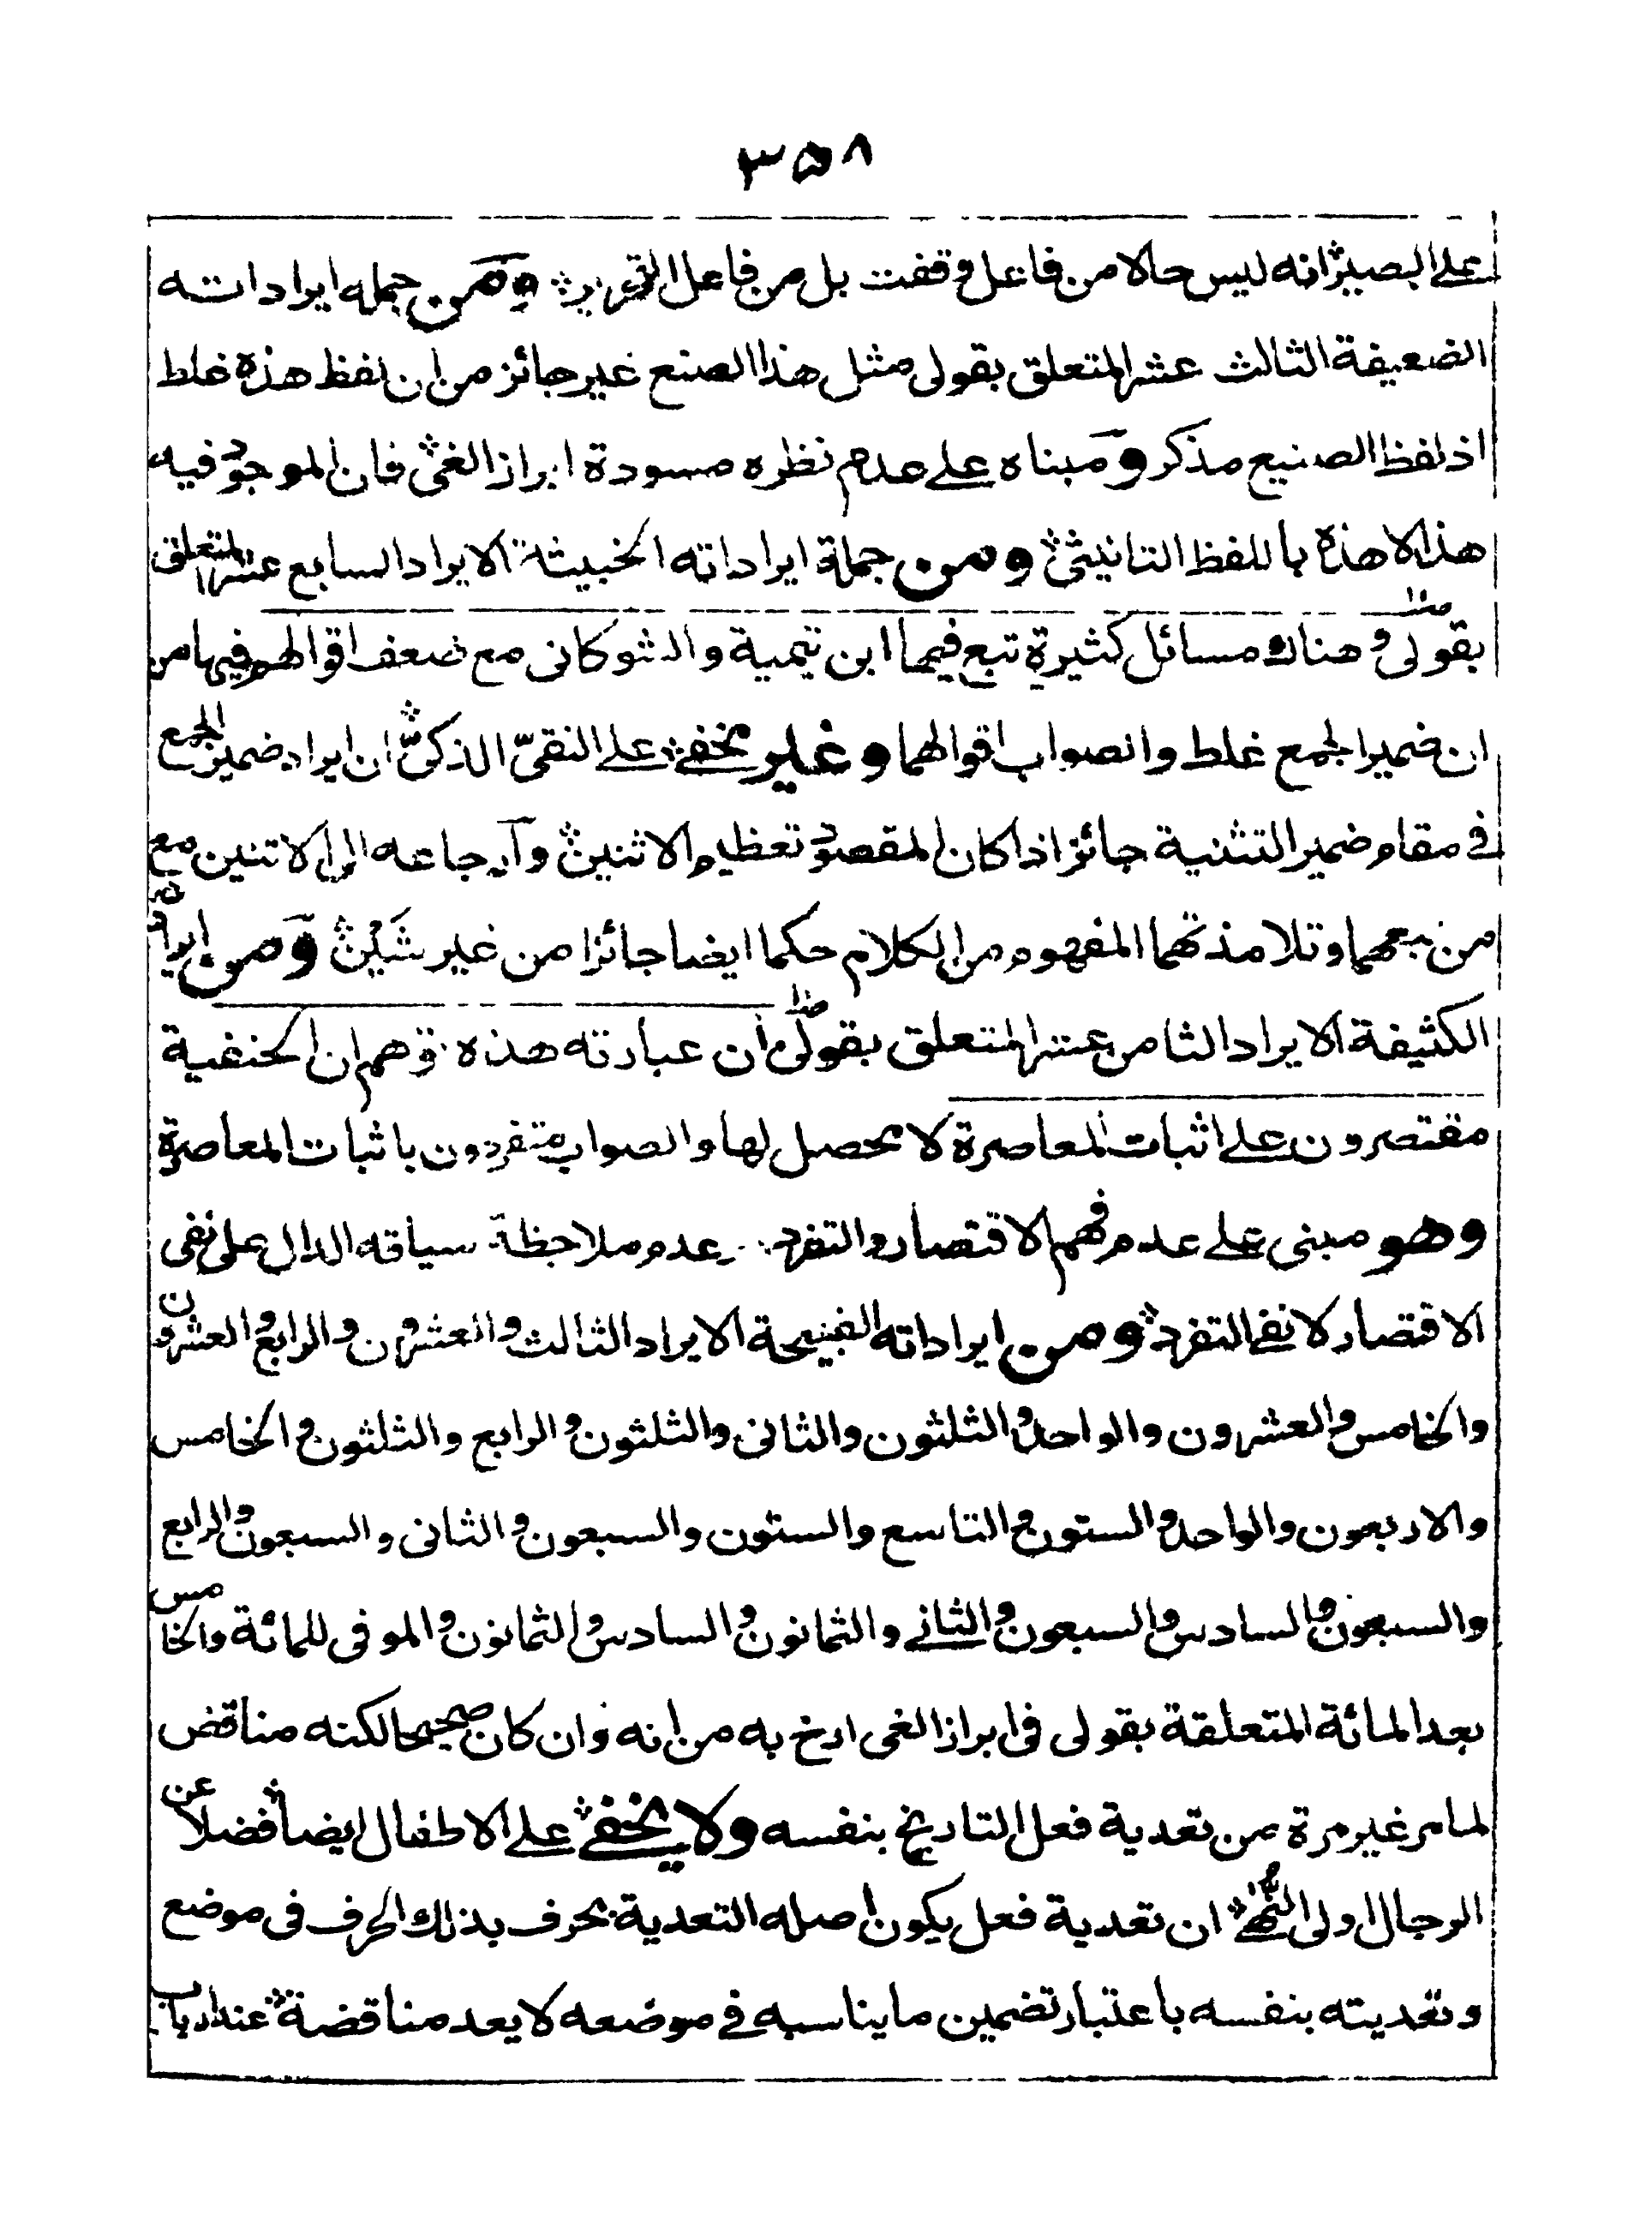 ٣٥٨
على البصير انه ليس حالا من فاعل وقفت بل من فاعل ومن جمله ايراداته
الضعيفة الثالث عشر المتعلق بقولى مثل هذا الصنع غير جائز من ان لفظ هذه غلط
اذ لفظ الصنيع مذكر ومبناه على عدم نظره مسودة ابراز الغى فان الموجود فيه
هذا لا هذه باللفظ التانيثى ومن جملة ايراداته الخبيثة الايراد السابع عشر المتعلق
بقولى وهناك مسائل كثيرة تبع فيها ابن تيمية والشوكانى مع ضعف اقوالهم فيها من
ان ضمير الجمع غلط والصواب اقوالهما وغير مخفى على النقىّ الذكىّ ان ايراد ضمير الجمع
فى مقام ضمير التثنية جائز اذا كان المقصود تعظيم الاثنين وارجاعه الى الاثنين مع
من تبعهما وتلامذتهما المفهوم من الكلام حكما ايضا جائز من غير شَيْن ومن ايراداته
الكثيفة الايراد الثامن عشر المتعلق بقولى ان عبارته هذه توهم ان الحنفية
مقتصرون على اثبات المعاصرة لا محصل لها والصواب متفردون باثبات المعاصرة
وهو مبنى على عدم فهم الاقتصار والتفرد وعدم ملاحظة سياقه الدال على نفى
الاقتصار لا نفى التفرد ومن ايراداته القبيحة الايراد الثالث والعشرون والرابع والعشرون
والخامس والعشرون والواحد والثلثون والثانى والثلثون والرابع والثلثون والخامس
والاربعون والواحد والستون والتاسع والستون والسبعون والثانى والسبعون والرابع
والسبعون والسادس والسبعون والثانى والثمانون والسادس والثمانون والموفى للمائة والخامس
بعد المائة المتعلقة بقولى فى ابراز الغى ارخ به من انه وان كان صحيحا لكنه مناقض
لما مر غير مرة من تعدية فعل التاريخ بنفسه ولا يخفى على الاطفال ايضا فضلا عن
الرجال اولى النُّهى ان تعدية فعل يكون اصله التعدية بحرف بذلك الحرف فى موضع
وتعديته بنفسه باعتبار تضمين ما يناسبه فى موضعه لا يعد مناقضة عند ارباب